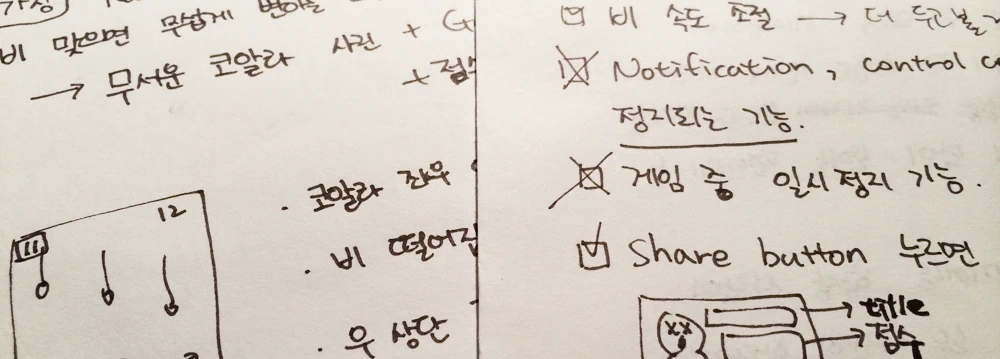 비 맞으면 무섭게 변하는
→ 무서운 코알라 사진 + G
+ 점수
12
· 코알라 좌우
· 비 떨어짐
· 우 상단
비 속도 조절 → 더
Notification, control c
정지되는 기능.
게임 중 일시정지 기능.
Share button 누르면
→ title
→ 점수